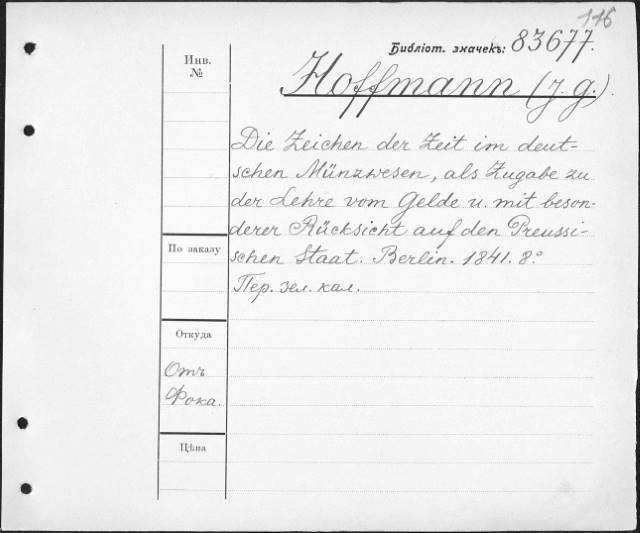 116
Библіот. значекъ: 83677.
Инв.
№
Hoffmann (J. G.)
Die Zeichen der Zeit im deut-
schen Münzwesen, als Zugabe zu
der Lehre vom Gelde u. mit beson-
derer Rücksicht auf den Preussi-
schen Staat. Berlin. 1841. 8.°
Пер. зел. кал.
По заказу
Откуда
Отъ
Фока.
Цѣна